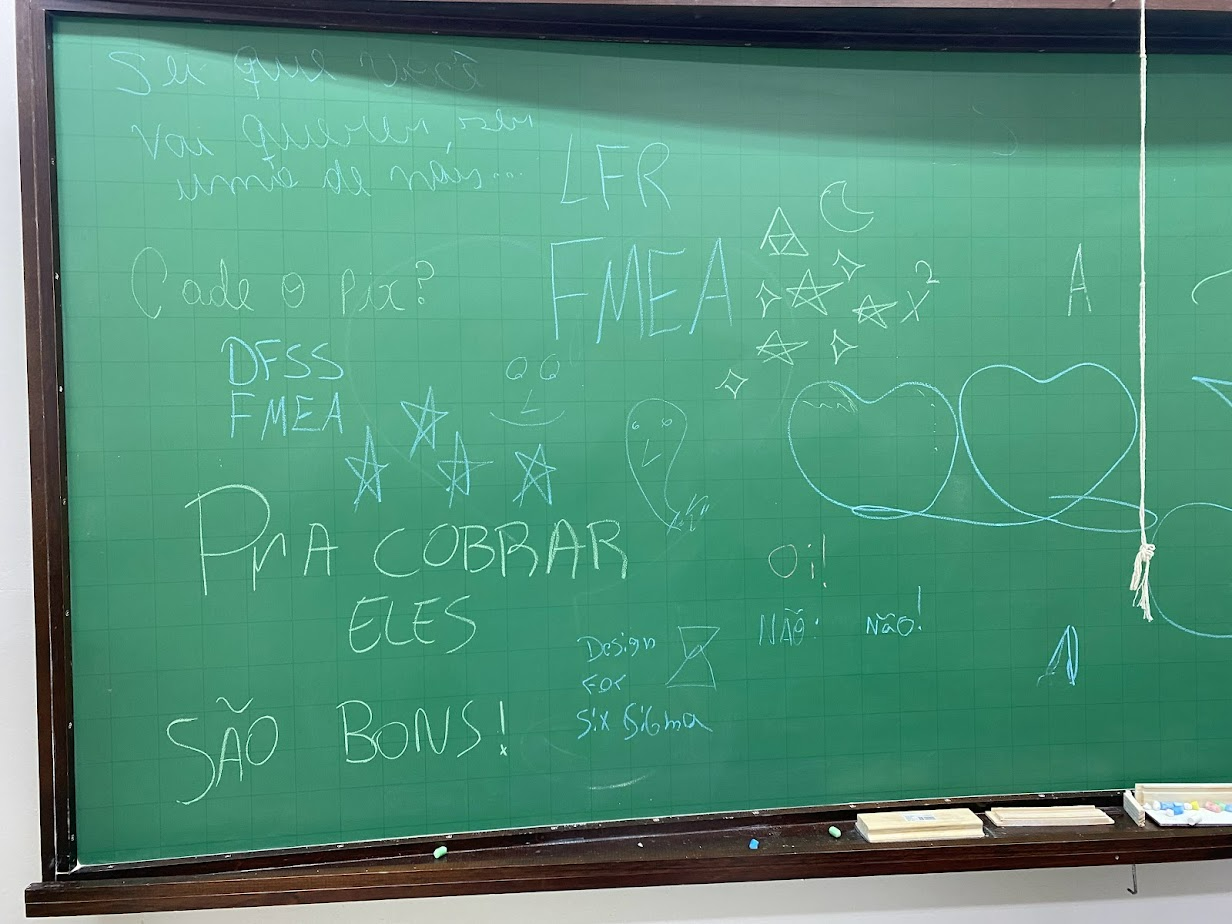 Sei que você
vai querer ser
uma de nós...
LFR
FMEA
Cade o pix?
X²
A
DFSS
FMEA
PrA COBRAR
ELES
SÃO BONS!
Oi!
NÃO! Não!
Design
For
Six Sigma